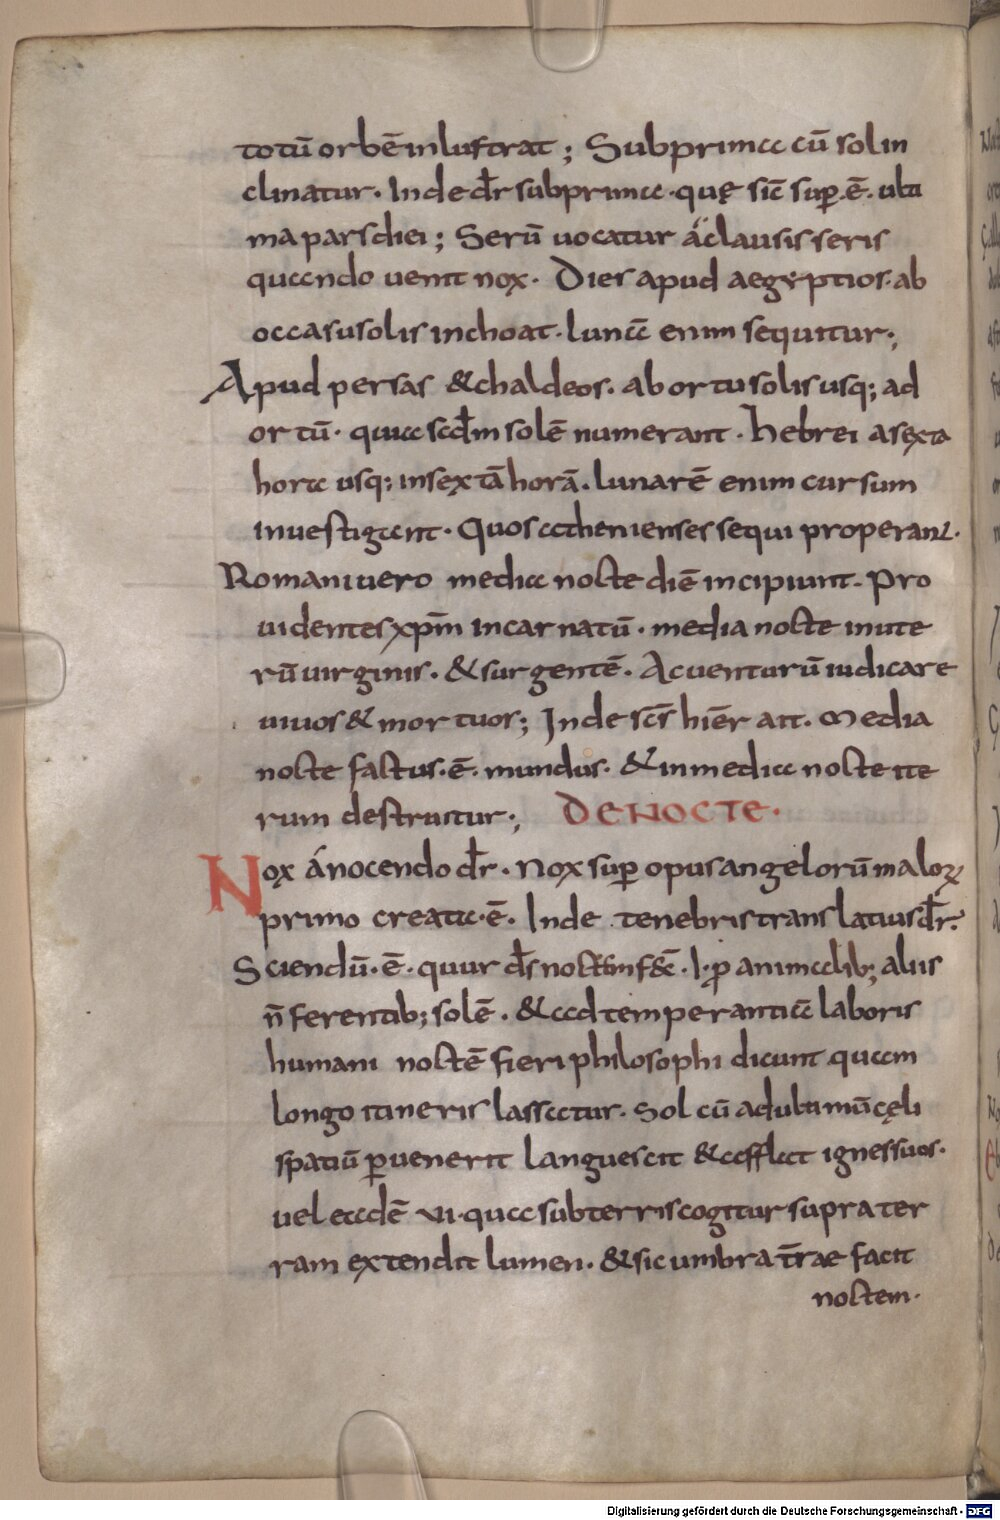 totū orbē inlustrat ; Subprima cū sol in
clinatur. Inde dr̄ subprima. quę sic̄ sup̄ .ē. ulti
ma pars diei ; Serū uocatur a clausis seris
quando uenit nox. Dies apud aegyptios. ab
occasu solis inchoat. lunā enim sequitur ;
Apud persas & chaldeos. ab ortu solis usq; ad
ortū. quia scdm̄ solē numerant. hebrei a sexta
hora usq; in sextā horā. lunarē enim cursum
inuestigant. Quos athenienses sequi properant.
Romani uero media nocte diē incipiunt. Pro
uidentes xp̄m incarnatū. media nocte in ute
rū uirginis. & surgentē. Ac uenturū iudicare
uiuos & mortuos ; Inde scs̄ hier̄ ait. Media
nocte factus .ē. mundus. & in media nocte ite
rum destruitur ; DE NOCTE.
Nox á nocendo dr̄. Nox sup̄ opus angelorū maloꝝ
primo creata .ē. Inde tenebris translatius dr̄.
Sciendū .ē. quur ds̄ noctēm fec̄. l. ꝓ animalib; aliis
n̄ ferentib; solē. & ad temperantiā laboris
humani noctē fieri philosophi dicunt quam
longo itineris lassatur. Sol cū ad ultimū cęli
spatiū ꝑuenerit languescit & afflat ignes suos.
uel eadē ui. qua sub terris cogitur supra ter
ram extendit lumen. & sic umbra tr̄ae facit
noctem.